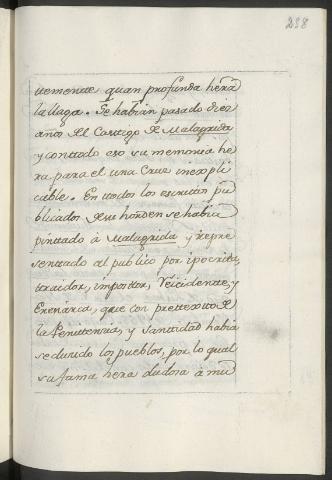 238
temente quan profunda hera
la llaga. Se habian pasado diez
años del Castigo de Malagrida
y conttodo eso su memoria he
ra para el una Cruz inexpli
cable. En ttodos los escritos pu
blicados de su horden se habia
pinttado â Malagrida y repre
senttado al publico por ipocrita,
traidor, impostor, Reicidente, y
Eresiarca, que con prettexto de
la Penittencia, y Santtidad habia
seducido los pueblos, por lo qual
su fama hera dudosa â mu